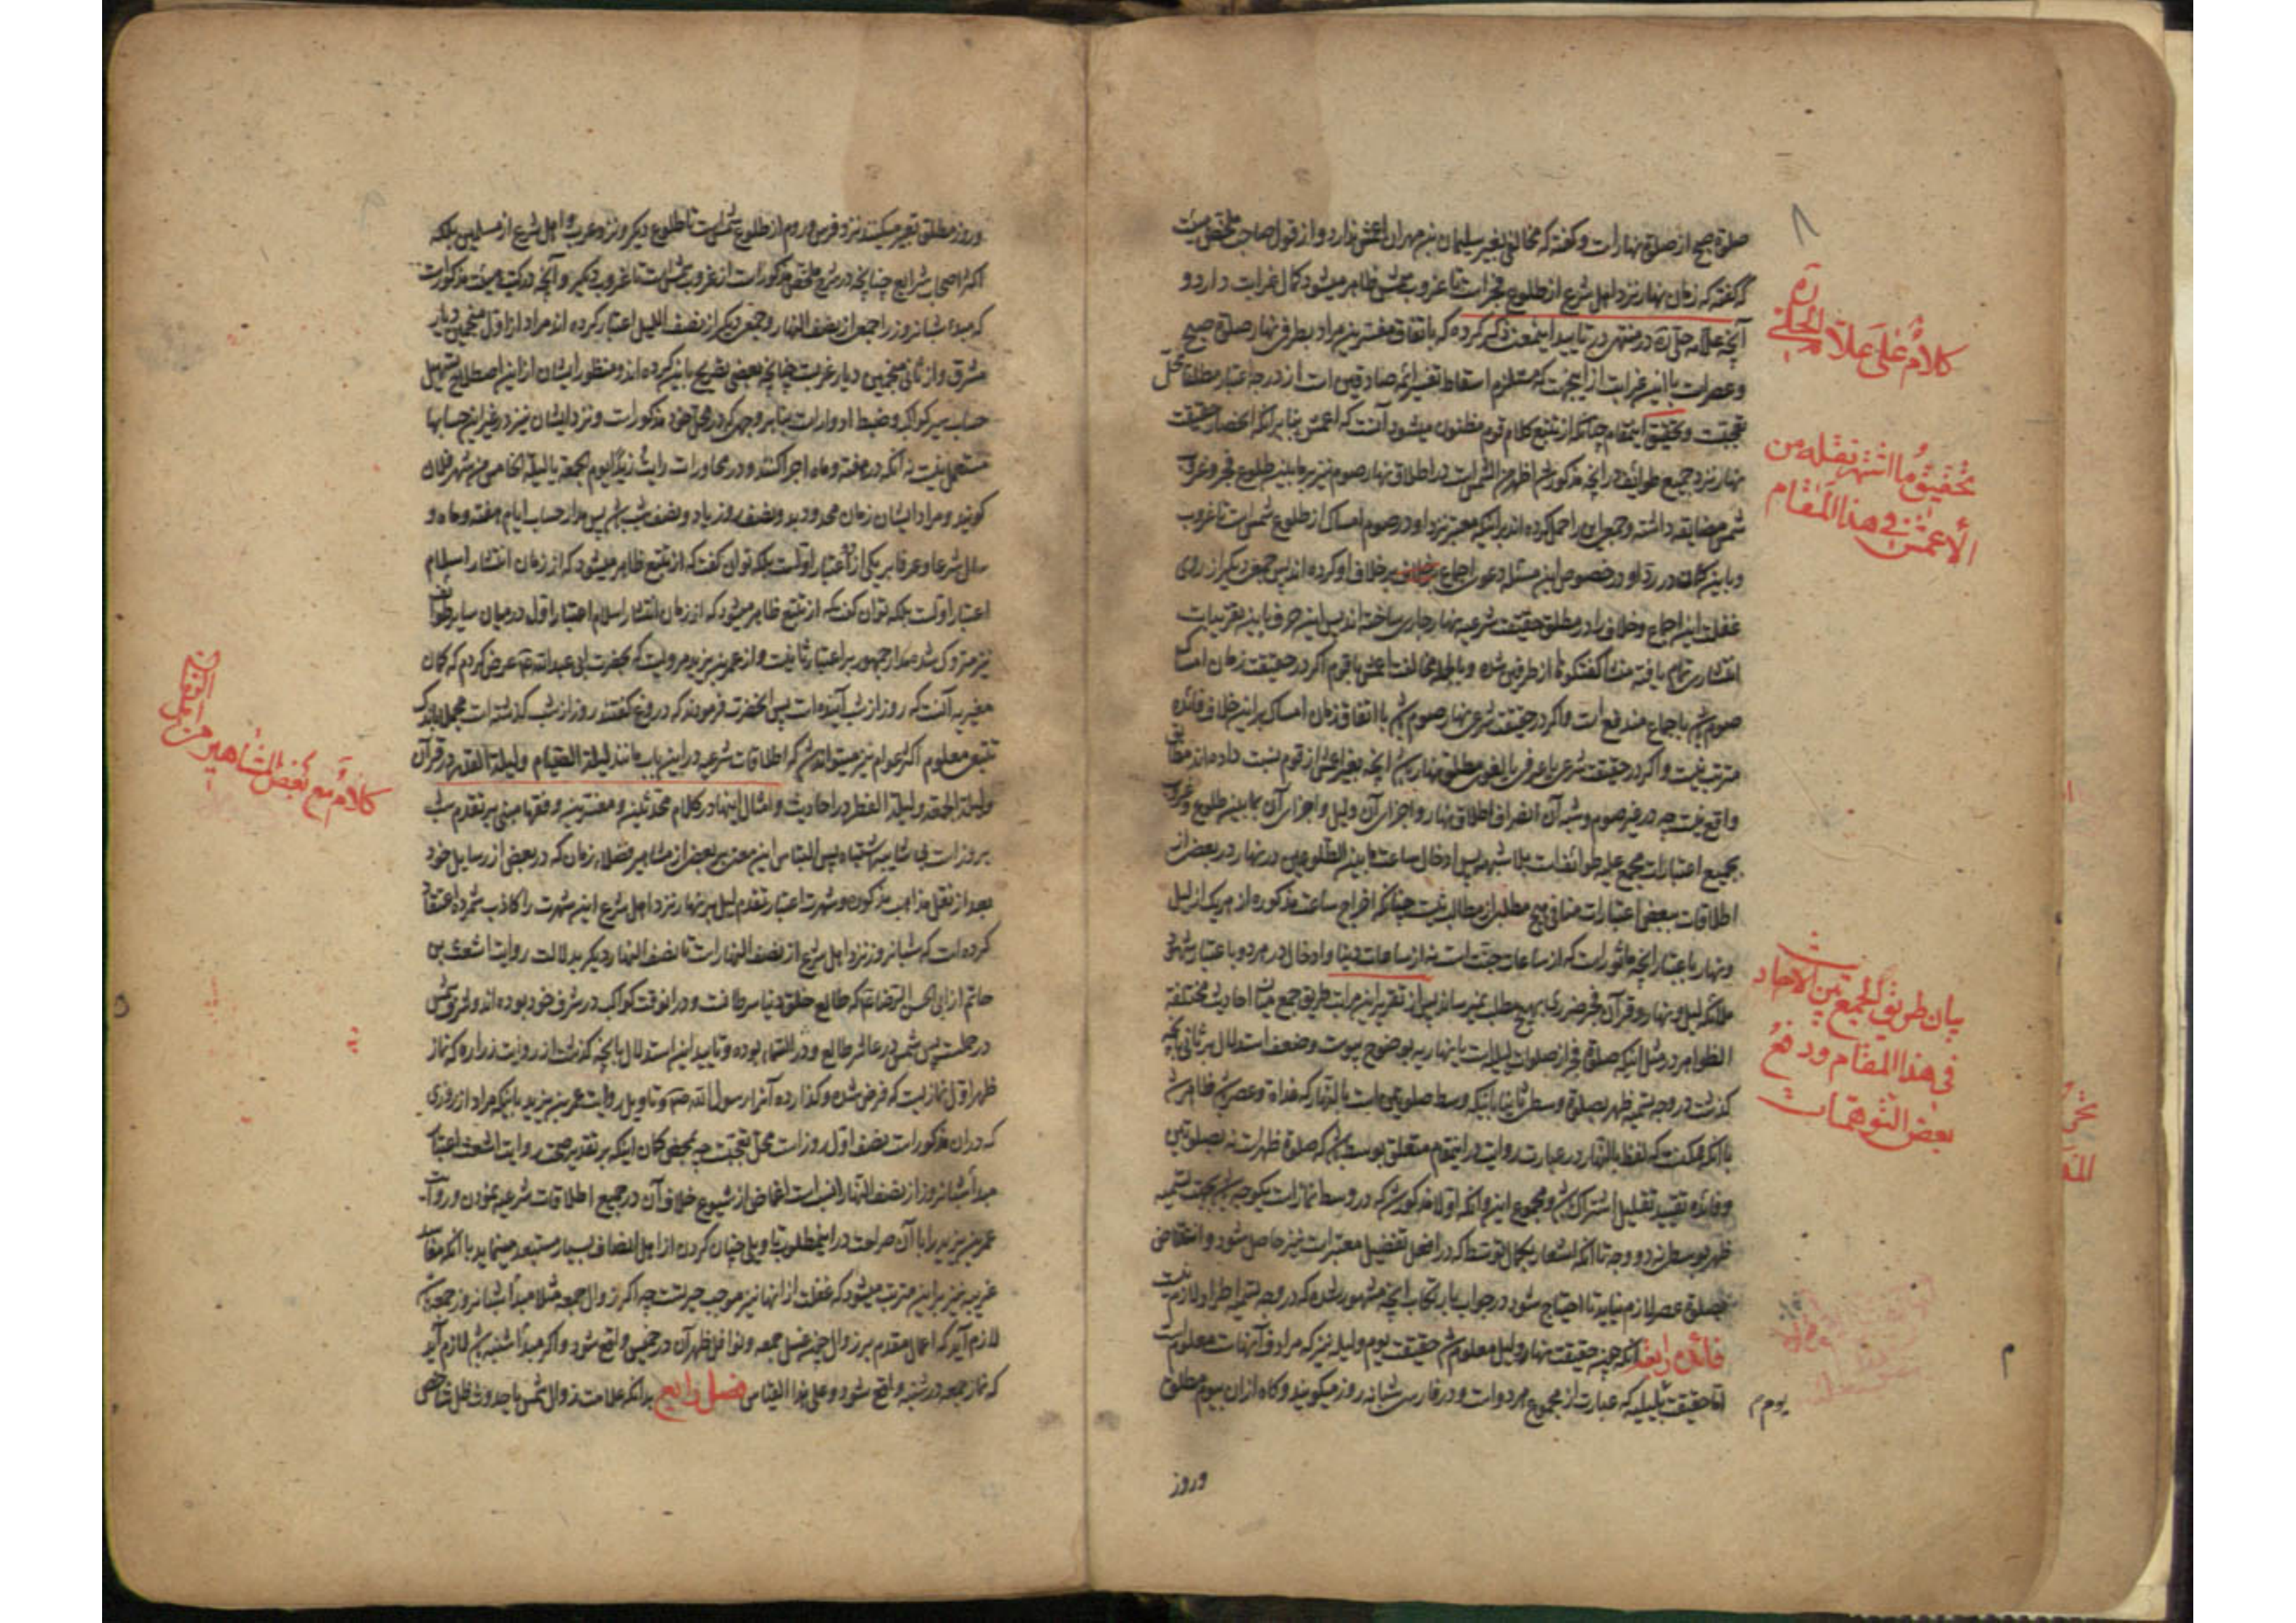 صلوة صبح از صلوة نهار است و گفته که مخالفی بغیر سلیمان بن مهران اعمش ندارد و از قول صاحب ملخص هیئت
که گفته که زمان نهار نزد اهل شرع از طلوع فجر است تا غروب شمس ظاهر میشود کمال غرابت دارد و
آنچه علامه حلی ره در منتهی در تایید اینمعنی ذکر کرده که باتفاق مفسرین مراد بطرفی نهار صلوة صبح
و عصر است با این غرابت از اینجهت که مستلزم اسقاط تفسیر ائمه صادقین است از درجه اعتبار مطلقا محل
تعجبست و تحقیق اینمقام چنانکه از تتبع کلام قوم مظنون میشود آنست که اعمش بنا بر آنکه انحصار حقیقت
نهار نزد جمیع طوائف در آنچه مذکور شد اظهر من الشمس است در اطلاق نهار صوم نیز بر ما بین طلوع فجر و غروب
شمس مضایقه داشته و جمعی این را حمل کرده اند بر اینکه معتبر نزد او در صوم امساک از طلوع شمس است تا غروب
و باین گمان در رد او در خصوص این مسئله دعوی اجماع بر خلاف او کرده اند پس جمعی دیگر از روی
غفلت این اجماع و خلاف را در مطلق حقیقت شرعیه نهار جاری ساخته اند پس این حرف باین تقریبات
انتشاری تمام یافته منشا گفتگوها از طرفین شده و بالجمله مخالفت اعمش با قوم اگر در حقیقت زمان امساک
صوم باشد باجماع مندفع است و اگر در حقیقت شرعی نهار صوم باشد با اتفاق زمان امساک بر این خلاف فائده
مترتب نیست و اگر در حقیقت شرعی یا عرفی یا لغوی مطلق نهار باشد آنچه بغیر اعمش از قوم نسبت داده اند مطابق
واقع نیست چه در غیر صوم و شبه آن انصراف اطلاق نهار و اجزای آن و لیل و اجزای آن بما بین طلوع و غروب
بجمیع اعتبارات مجمع علیه طوائفست بلا شبهه پس ادخال ساعت ما بین الطلوعین در نهار در بعض از
اطلاقات ببعضی اعتبارات منافی هیچ مطلب از مطالب نیست چنانکه اخراج ساعت مذکوره از هر یک از لیل
و نهار باعتبار آنچه ماثور است که از ساعات جنت است نه از ساعات دنیا و ادخال در هر دو باعتبار شهود
ملائکه لیل و نهار و قرآن فجر ضرری بهیچ مطلب نمیرساند پس از تقریر این مراتب طریق جمع میان احادیث مختلفة
الظواهر در مثل اینکه صلوة فجر از صلوات لیلیه است یا نهاریه بوضوح پیوست و ضعف استدلال بر ثانی بآنچه
گذشت در وجه تسمیه ظهر بصلوة وسطی ثانیا باینکه وسط صلوتین است بالنهار که غداة و عصر باشد ظاهر شد
با آنکه ممکنست که لفظ بالنهار در عبارت روایت در اینمقام متعلق بوسط باشد که صلوة ظهر است نه بصلوتین
و فائده تقیید تقلیل اشتراک باشد و مجموع این و آنکه اولا مذکور شد که در وسط نماز است یکوجه باشد بجهت تسمیه
ظهر بوسطی نه دو وجه تا آنکه اشعار بکمال توسط که در افعل تفضیل معتبر است نیز حاصل شود و انتقاض
بصلوة عصر لازم نیاید تا احتیاج شود در جواب بارتکاب آنچه مشهور شده که در وجه تسمیه اطراد لازم نیست
فائده رابعه آنکه چون حقیقت نهار و لیل معلوم شد حقیقت یوم و لیله نیز که مرادف آنهاست معلوم است
اما حقیقت بلیلیه که عبارت از مجموع هر دو است و در فارسی شبانه روز میگویند و گاه از آن بیوم مطلق
یوم م
و روز
کلام علی علامة الحلی ره
تحقیق ما اشتهر نقله من
الأعمش فی هذا المقام
بیان طریق الجمع بین الاحادیث
فی هذا المقام و دفع
بعض التوهمات
و روز مطلق تعبیر میکنند نزد فرس و روم از طلوع شمس است تا طلوع دیگر و نزد عرب و اهل شرع از مسلمین بلکه
اکثر اصحاب شرایع چنانچه در شرح ملخص مذکور است از غروب شمس است تا غروب دیگر و آنچه در کتب هیئت مذکور است
که مبدء شبانروز را جمعی از نصف النهار و جمعی دیگر از نصف اللیل اعتبار کرده اند مراد از اول منجمین دیار
مشرق و از ثانی منجمین دیار غربست چنانچه بعضی تصریح باین کرده اند و منظور ایشان از این اصطلاح تسهیل
حساب سیر کواکب و ضبط ادوار است بنا بر وجهی که در محل خود مذکور است و نزد ایشان نیز در غیر این حسابها
مستعمل نیست نه آنکه در هفته و ماه اجرا کنند و در محاورات رایت زیدا یوم الجمعة یا لیلة الخامس من شهر فلان
گویند و مراد ایشان زمان محدود بدو نصف روز یا دو نصف شب باشد پس مدار حساب ایام هفته و ماه و
سال شرعا و عرفا بر یکی از دو اعتبار اولست بلکه توان گفت که از تتبع ظاهر میشود که از زمان انتشار اسلام
اعتبار اولست بلکه توان گفت که از تتبع ظاهر میشود که از زمان انتشار اسلام اعتبار اول در میان سایر طوایف
نیز متروک شد مدار جمهور بر اعتبار ثانیست و از عمر بن یزید مرویست که بحضرت ابی عبدالله ع عرض کردم که گمان
مغیریه آنست که روز از شب آینده است پس آنحضرت فرمودند که دروغ گفتند روز از شب گذشته است مجملا باندک
تتبعی معلوم اکثر عوام نیز میتواند شد که اطلاقات شرعیه در این باب مانند لیلة القیام و لیلة القدر در قرآن
و لیلة الجمعة و لیلة الفطر در احادیث و امثال اینها در کلام محدثین و مفسرین و فقها مبنی بر تقدم شب
بر روز است بی شایبه اشتباه پس التباس این معنی بر بعض از مشاهیر فضلاء زمان که در بعضی از رسایل خود
بعد از نقل مذاهب مذکوره و شهرت اعتبار تقدم لیل بر نهار نزد اهل شرع این شهرت را کاذب شمرده اعتقاد
کرده است که شبانروز نزد اهل شرع از نصف النهار است تا نصف النهار دیگر بدلالت روایت اشعث بن
حاتم از ابی الحسن الرضا ع که طالع خلق دنیا سرطانست و در انوقت کواکب در شرف خود بوده اند و شرف شمس
در حملست پس شمس در عاشر طالع و در وسط السماء بوده و تایید این استدلال بآنچه گذشت از روایت زراره که نماز
ظهر اول نمازیست که فرض شده و گذارده آنرا رسول الله صم و تاویل روایت عمر بن یزید باینکه مراد از روزی
که در آن مذکور است نصف اول روز است محل تعجبست چه بمحض گمان اینکه بر تقدیر صحت روایت اشعث اعتبار
مبدأ شبانروز از نصف النهار انسب است اغماض از شیوع خلاف آن در جمیع اطلاقات شرعیه نمودن و روایت
عمر بن یزید را با آن صراحت در اینمطلوب تاویلی چنان کردن از اهل انصاف بسیار مستبعد مینماید با آنکه مفاسد
غریبه نیز بر این مترتب میشود که غفلت از آنها نیز موجب حیرتست چه اگر زوال جمعه مثلا مبدأ شبانروز جمعه باشد
لازم آید که اعمال مقدم بر زوال چون غسل جمعه و نوافل ظهر آن در خمیس واقع شود و اگر مبدأ شنبه باشد لازم آید
که نماز جمعه در شنبه واقع شود و علی هذا القیاس فصل رابع بدانکه علامت زوال شمس یا حدوث ظل شاخص
کلام مع بعض المشاهیر من